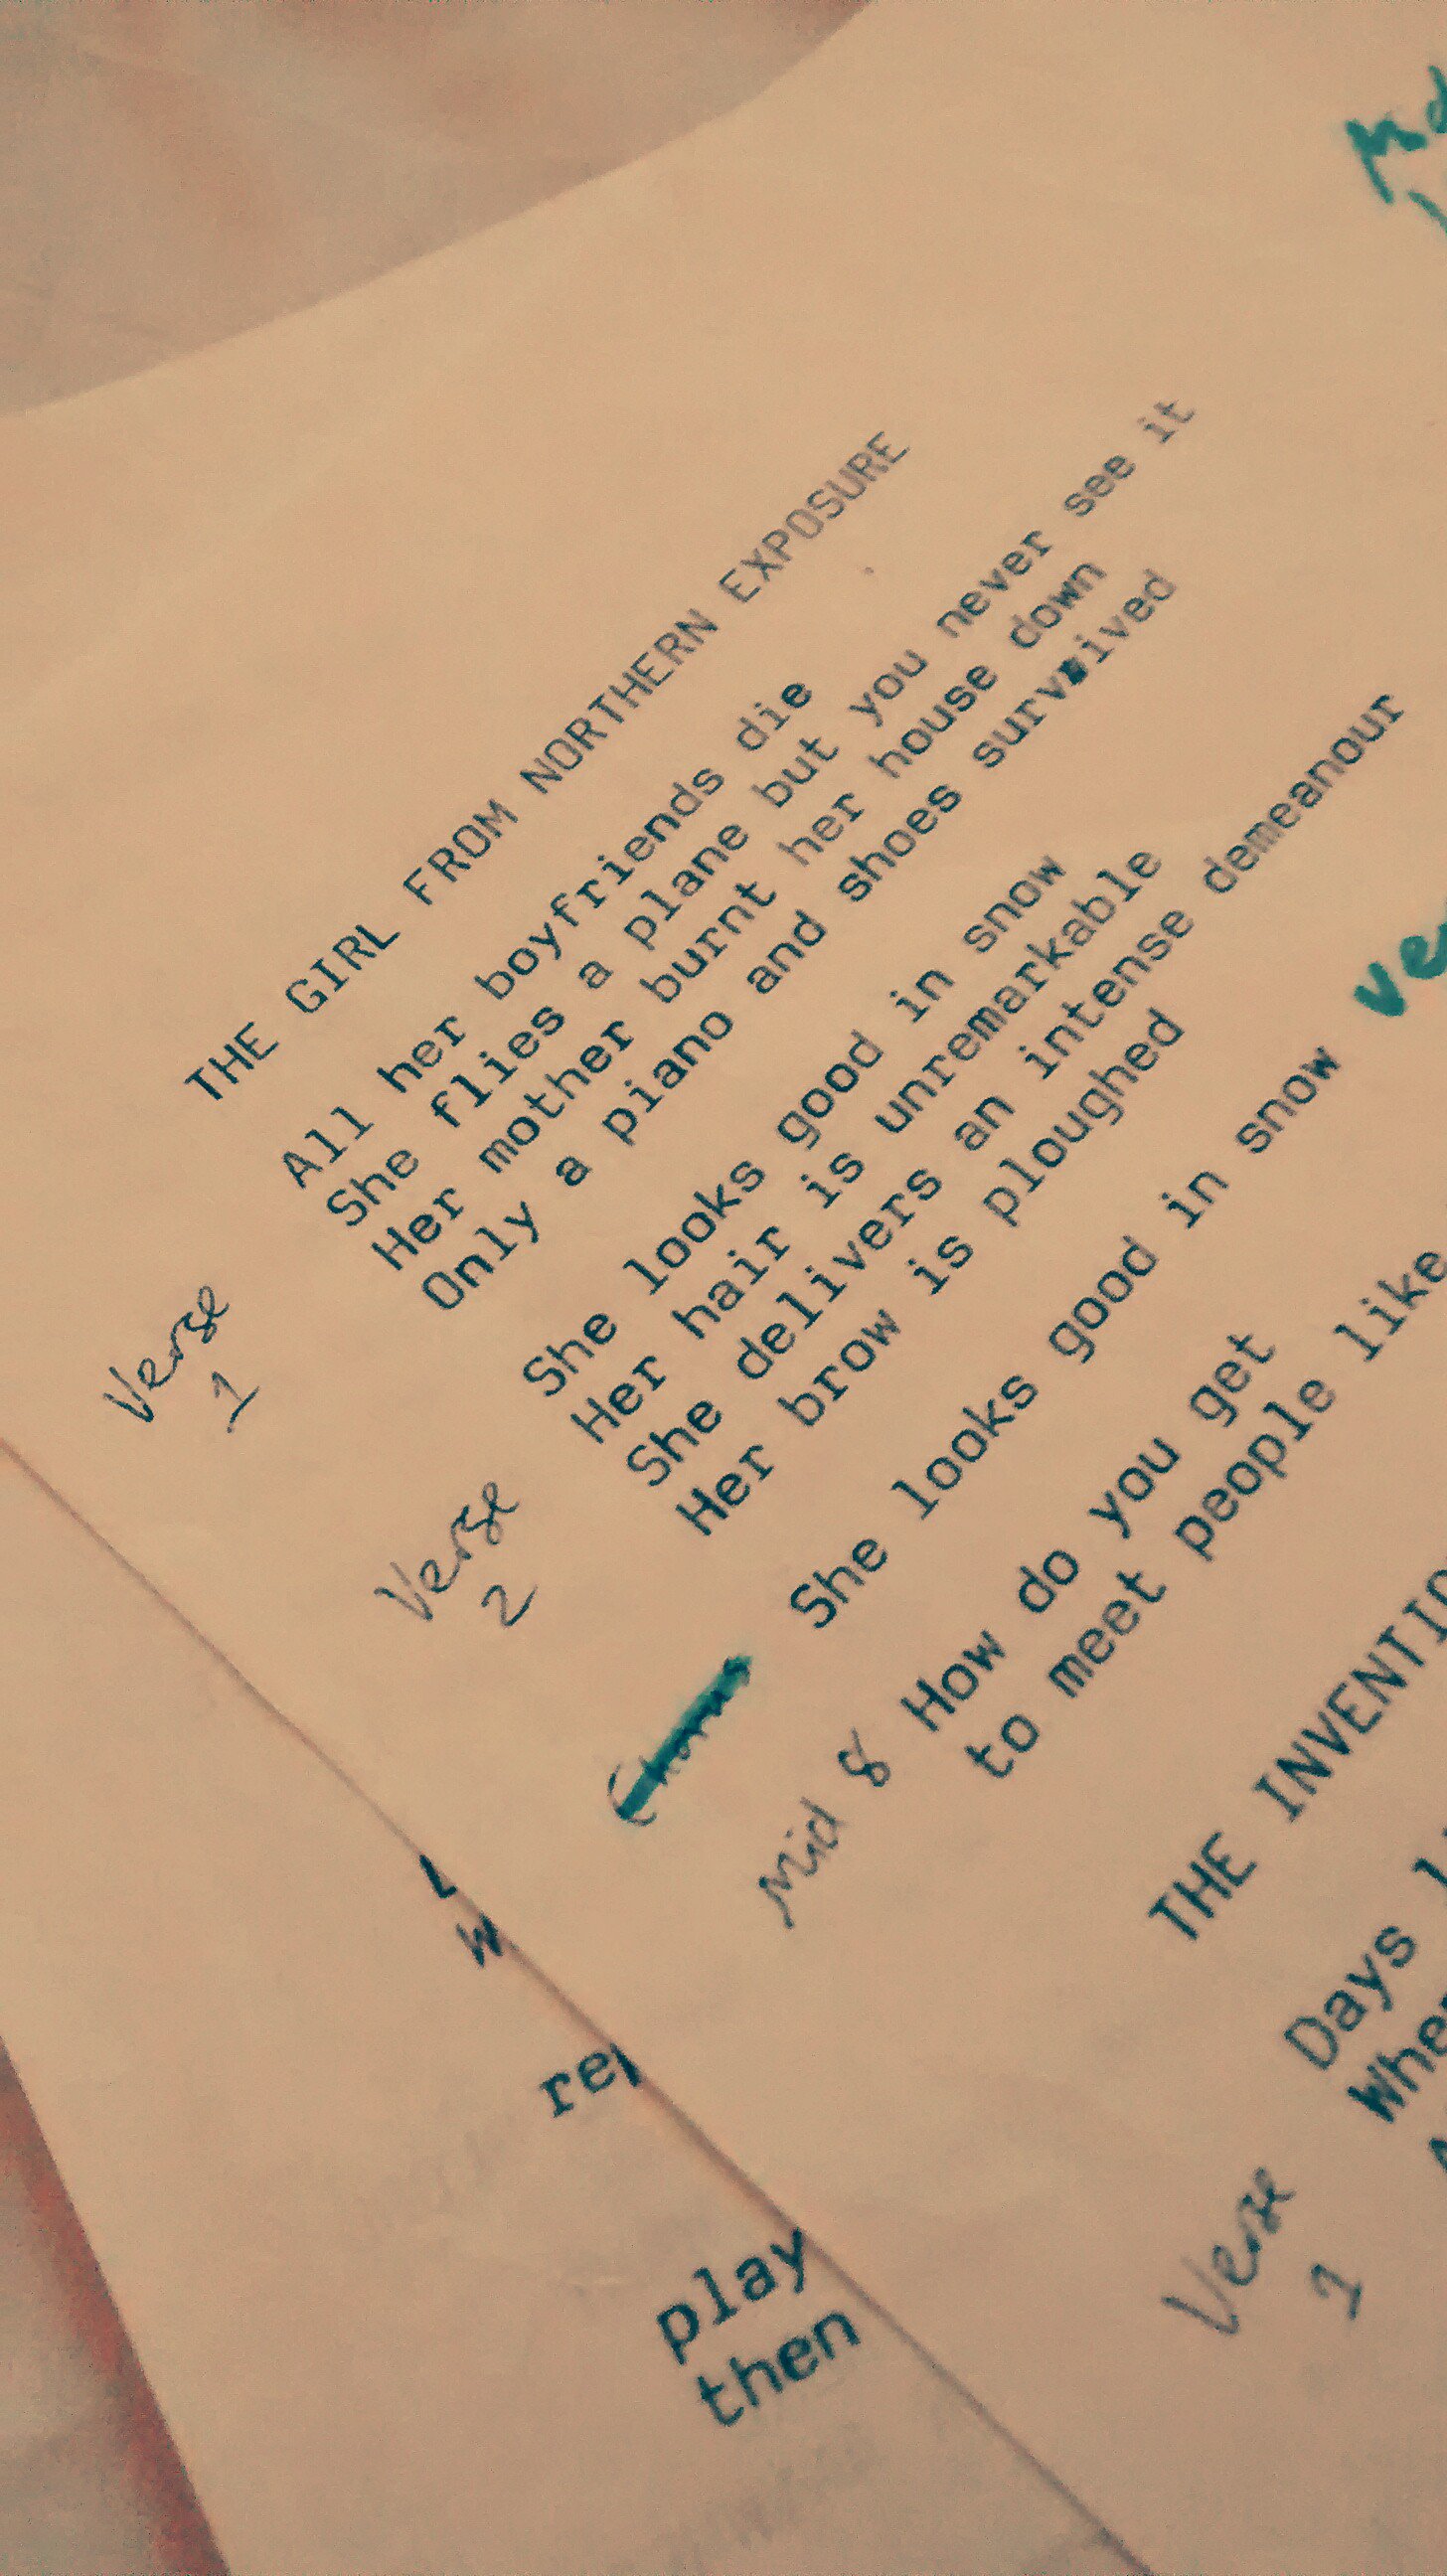 THE GIRL FROM NORTHERN EXPOSURE
Verse
1
All her boyfriends die
She flies a plane but you never see it
Her mother burnt her house down
Only a piano and shoes survived
Verse
2
She looks good in snow
Her hair is unremarkable
She delivers an intense demeanour
Her brow is ploughed
Chorus
She looks good in snow
Mid 8
How do you get
to meet people like
THE
Days
Verse
1
play
then